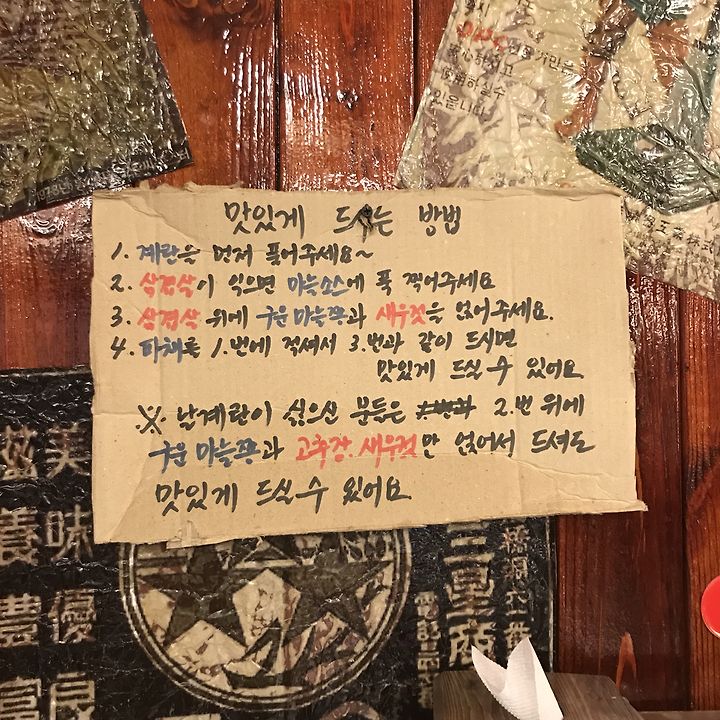 맛있게 드시는 방법
1. 계란은 먼저 풀어주세요~
2. 삼겹살이 익으면 마늘소스에 푹 찍어주세요
3. 삼겹살 위에 구운마늘쫑과 새우젓을 얹어주세요.
4. 파채를 1.번에 적셔서 3.번과 같이 드시면
맛있게 드실 수 있어요.
※ 날계란이 싫으신 분들은 2.번 위에
구운 마늘쫑과 고추장, 새우젓만 얹어서 드셔도
맛있게 드실 수 있어요
하실수
있읍니다
美味優良
滋養豊富